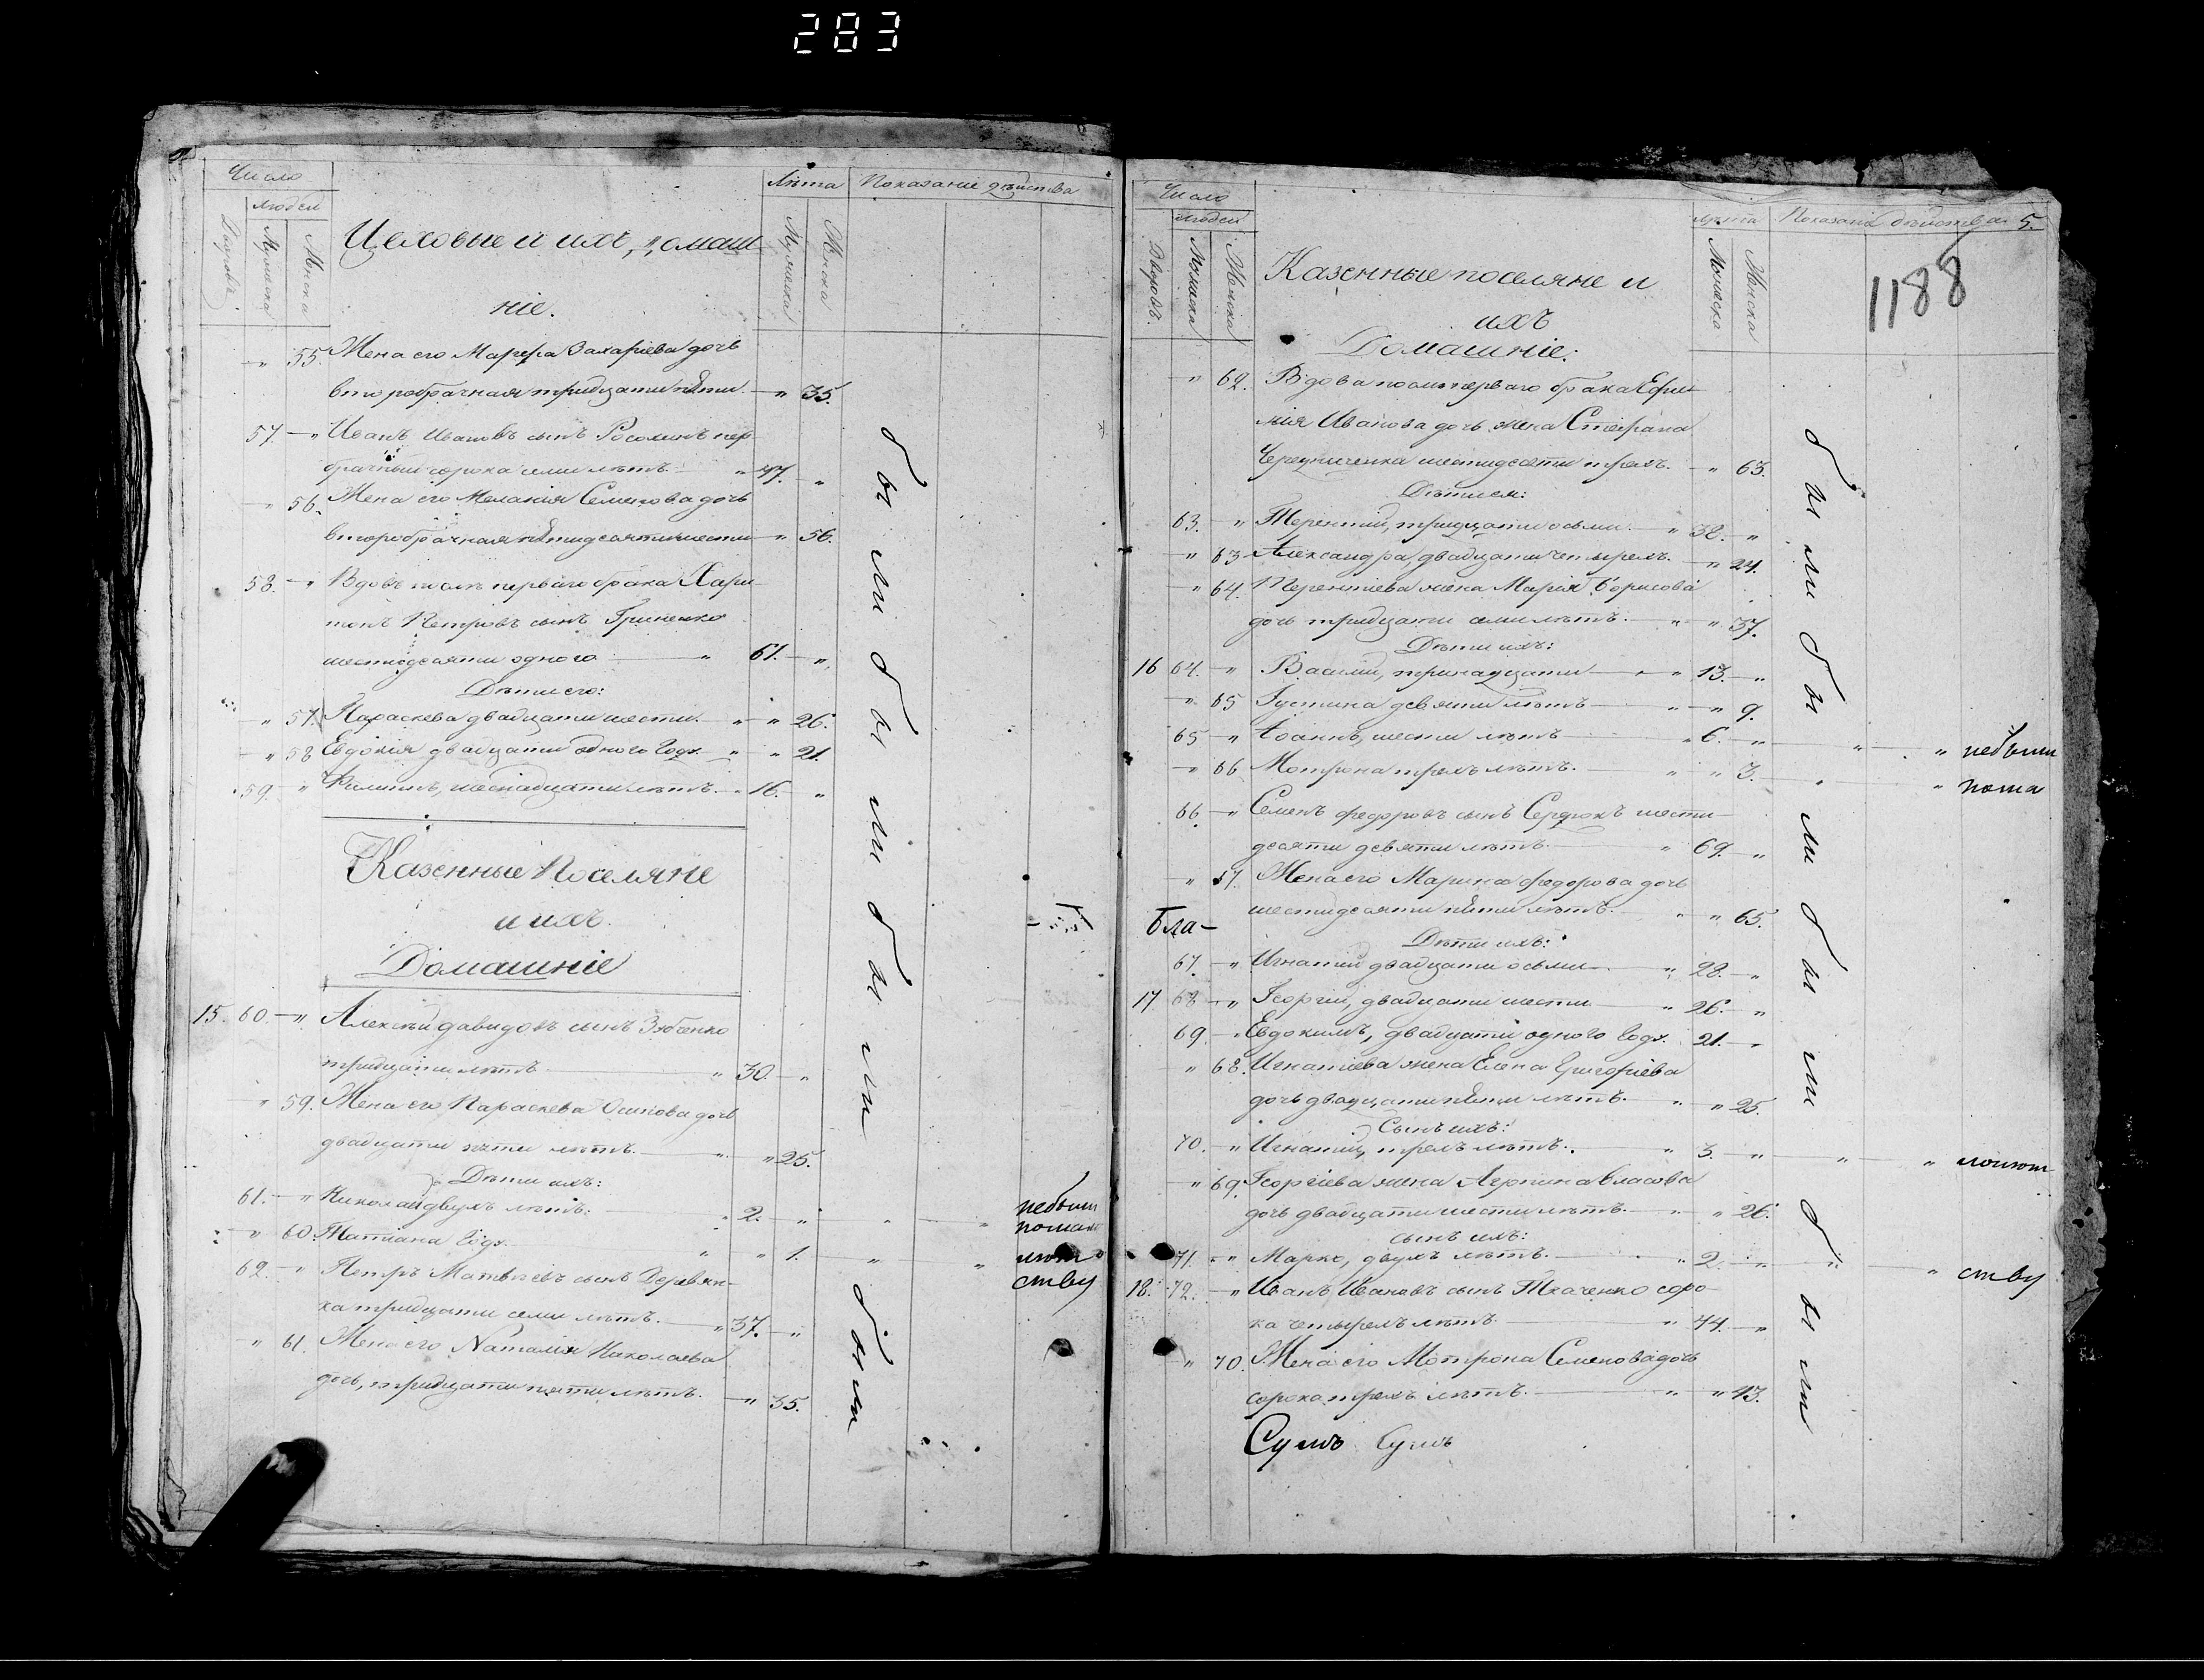 283
Число
людей
Дворовъ
Мужеска
Женска
Цеховые и ихъ домаш
ніе.
Лѣта
Мужеска
Женска
Показаніе дѣйства
" 55. Жена его Марѳа Захаріева дочь
второбрачная тридцати пяти — " 35.
57. — " Иванъ Ивановъ сынъ Росолинъ пер
брачный сорока семи лѣтъ — " 47. "
" 56. Жена его Меланія Семенова дочь
второбрачная пятидесяти шести — " 56.
58. — " Вдовъ послѣ перваго брака Хари
тонъ Петровъ сынъ Гриненко
шестидесяти одного — " 61. — "
Дѣти его:
" 57. Параскева двадцати шести. — " " 26.
" 58 Евдокія двадцати одного года " " 21.
59. — " Филиппъ, шестнадцати лѣтъ. — 16. "
Казенные Поселяне
и ихъ
Домашніе
15. 60. — " Алексѣй Давидовъ сынъ Зубенко
тридцати лѣтъ — " 30. — "
" 59. Жена его Параскева Осипова дочь
двадцати пяти лѣтъ. — " " 25.
Дѣти ихъ:
61. — " Николай двухъ лѣтъ: — " 2. — " " "
" 60. Татіана года. — " " 1. — " "
62. — " Петръ Матвѣевъ сынъ Деревян-
ка тридцати семи лѣтъ. — " 37. — "
" 61. Жена его Наталія Николаева
дочь, тридцати пяти лѣтъ. — " 35.
были были были были
небыли
помало
лѣт
ству
Число
людей
Дворовъ
Мужеска
Женска
Казенные поселяне и
ихъ
Домашніе:
Лѣта
Мужеска
Женска
Показаніе дѣйства 5.
1188
" 62. Вдова послѣ перваго брака Ефи
мія Иванова дочь жена Стефана
Чередниченка шестидесяти трехъ. — " 63.
Дѣти ея:
63. — " Терентій, тридцати осьми. — " 38. — "
" 63 Александра, двадцати четырехъ. — " 24.
" 64. Терентіева жена Марія Борисова
дочь тридцати семи лѣтъ. — " " 37.
Дѣти ихъ:
16 64. — " Василій, тринадцати — " " 13. — "
" 65 Іустина девяти лѣтъ — " " 9.
65 — " Іоаннъ, шести лѣтъ — " 6. — " " " небыли
" 66 Мотрона трехъ лѣтъ. — " " 3. " " пома
66. — " Семенъ Федоровъ сынъ Сердюкъ шести
десяти девяти лѣтъ — " 69. — "
" 67. Жена его Марина Федорова дочь
шестидесяти пяти лѣтъ. — " " 65.
Бла-
Дѣти ихъ:
67. — " Игнатій двадцати осьми — " 28. — "
17 68 — " Георгій, двадцати шести — " 26. — "
69. — " Евдокимъ, двадцати одного года. 21. — "
" 68. Игнатіева жена Елена Григоріева
дочь двадцати пяти лѣтъ. — " " 25.
Сынъ ихъ:
70. — " Игнатій, трехъ лѣтъ. — " 3. — " " "
" 69. Георгіева жена Агрипина Власова
дочь двадцати шести лѣтъ. — " " 26.
сынъ ихъ:
71. — " Марко, двухъ лѣтъ. — " 2. — " " " ству
18. 72. — " Иванъ Ивановъ сынъ Ткаченко соро-
ка четырехъ лѣтъ. — " 44. — "
" 70. Жена его Мотрона Семенова дочь
сорока трехъ лѣтъ. — " " 43.
Сумъ Сумъ
были были были были